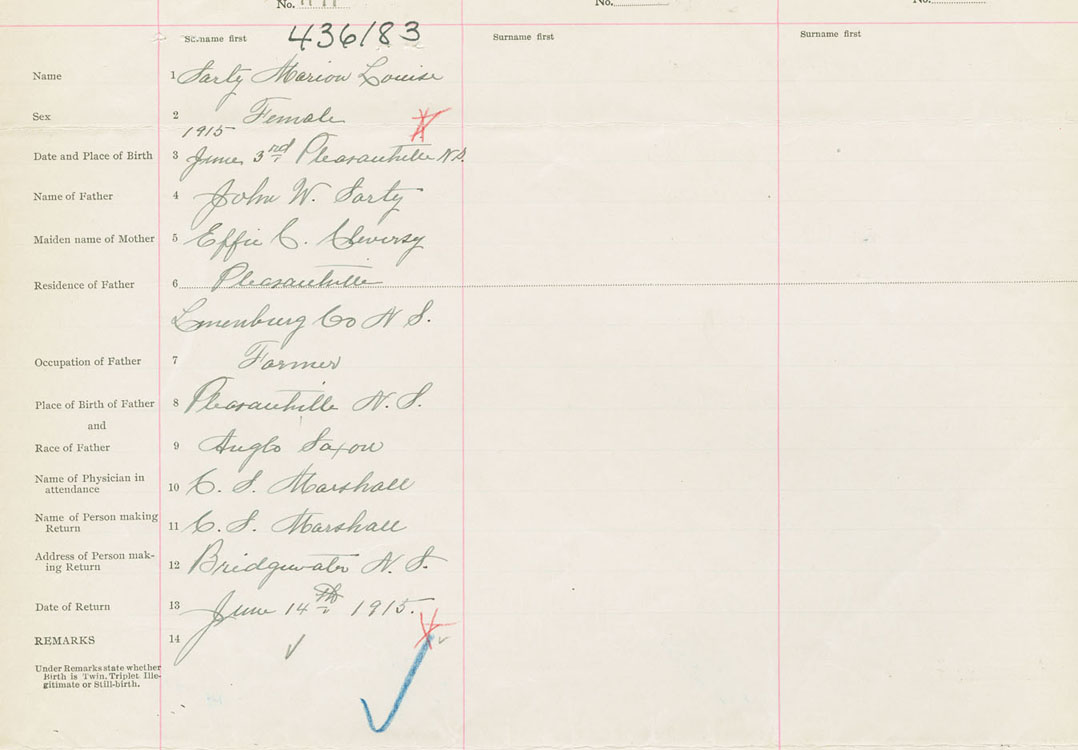 No.
No.
No.
Surname first 436183
Surname first
Surname first
Name 1 Sarty Marion Louise
Sex 2 Female
1915
Date and Place of Birth 3 June 3rd Pleasantville N.S.
Name of Father 4 John W. Sarty
Maiden name of Mother 5 Effie C.
Residence of Father 6 Pleasantville
Lunenburg Co N S.
Occupation of Father 7 Farmer
Place of Birth of Father 8 Pleasantville N. S.
and
Race of Father 9 Anglo Saxon
Name of Physician in
attendance 10 C. S. Marshall
Name of Person making
Return 11 C. S. Marshall
Address of Person mak-
ing Return 12 Bridgewater N. S.
Date of Return 13 June 14th 1915.
REMARKS 14
Under Remarks state whether
Birth is Twin, Triplet Ille-
gitimate or Still-birth.